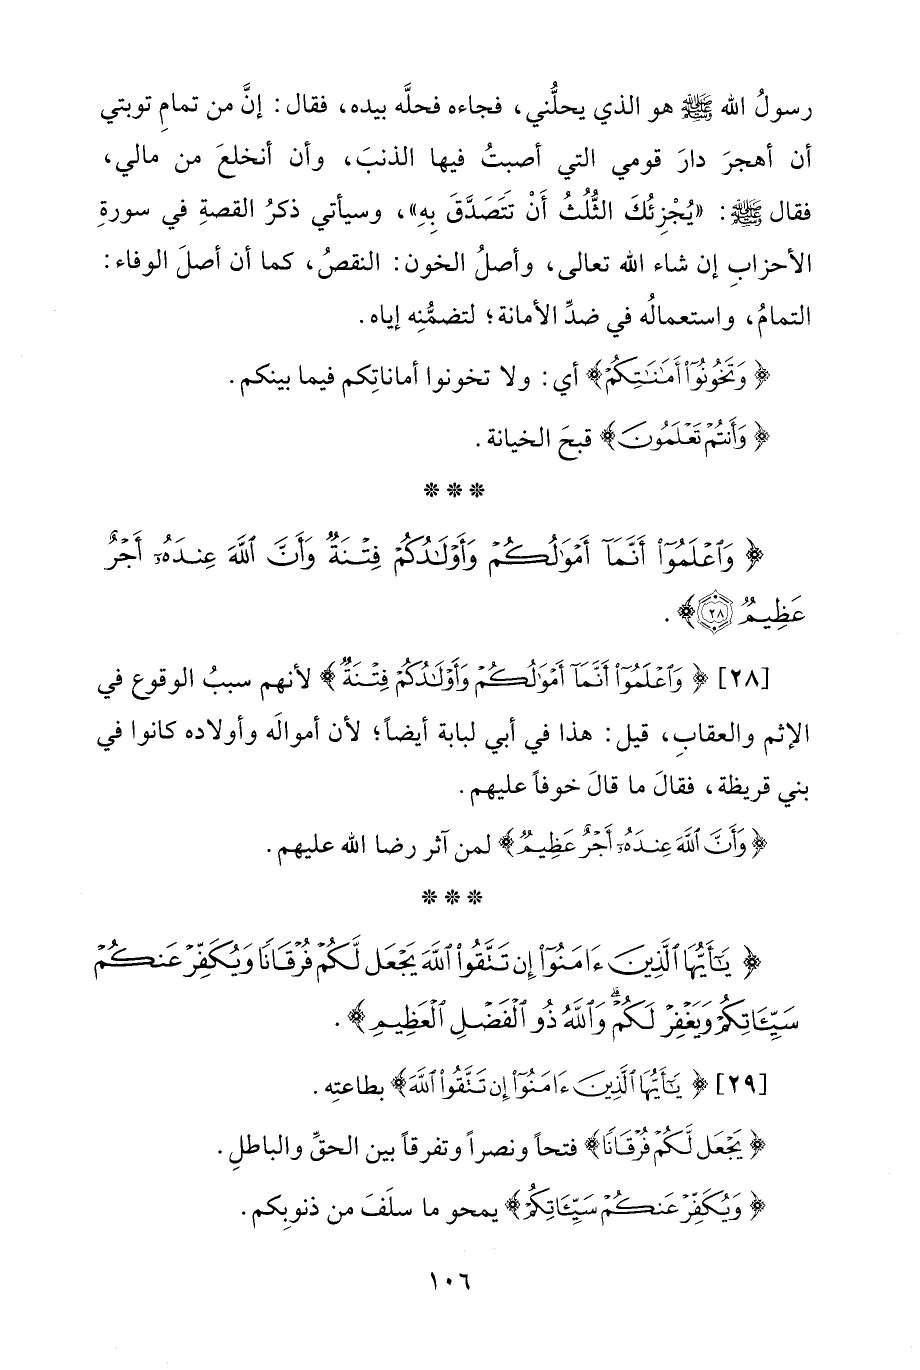 رسولُ الله ﷺ هو الذي يحلُّني، فجاءه فحلَّه بيده، فقال: إنَّ من تمامِ توبتي
أن أهجرَ دارَ قومي التي أصبتُ فيها الذنبَ، وأن أنخلعَ من مالي،
فقال ﷺ: «يُجْزِئُكَ الثُّلُثُ أَنْ تَتَصَدَّقَ بِهِ»، وسيأتي ذكرُ القصةِ في سورةِ
الأحزابِ إن شاء الله تعالى، وأصلُ الخون: النقصُ، كما أن أصلَ الوفاء:
التمامُ، واستعمالُه في ضدِّ الأمانة؛ لتضمُّنِه إياه.
﴿وَتَخُونُوٓا۟ أَمَـٰنَـٰتِكُمْ﴾ أي: ولا تخونوا أماناتِكم فيما بينكم.
﴿وَأَنتُمْ تَعْلَمُونَ﴾ قبحَ الخيانة.
* * *
﴿وَٱعْلَمُوٓا۟ أَنَّمَآ أَمْوَٰلُكُمْ وَأَوْلَـٰدُكُمْ فِتْنَةٌ وَأَنَّ ٱللَّهَ عِندَهُۥٓ أَجْرٌ
عَظِيمٌ ٢٨﴾.
[٢٨] ﴿وَٱعْلَمُوٓا۟ أَنَّمَآ أَمْوَٰلُكُمْ وَأَوْلَـٰدُكُمْ فِتْنَةٌ﴾ لأنهم سببُ الوقوع في
الإثم والعقابِ، قيل: هذا في أبي لبابة أيضاً؛ لأن أموالَه وأولاده كانوا في
بني قريظة، فقالَ ما قالَ خوفاً عليهم.
﴿وَأَنَّ ٱللَّهَ عِندَهُۥٓ أَجْرٌ عَظِيمٌ﴾ لمن آثر رضا الله عليهم.
* * *
﴿يَـٰٓأَيُّهَا ٱلَّذِينَ ءَامَنُوٓا۟ إِن تَتَّقُوا۟ ٱللَّهَ يَجْعَل لَّكُمْ فُرْقَانًا وَيُكَفِّرْ عَنكُمْ
سَيِّـَٔاتِكُمْ وَيَغْفِرْ لَكُمْ ۗ وَٱللَّهُ ذُو ٱلْفَضْلِ ٱلْعَظِيمِ﴾.
[٢٩] ﴿يَـٰٓأَيُّهَا ٱلَّذِينَ ءَامَنُوٓا۟ إِن تَتَّقُوا۟ ٱللَّهَ﴾ بطاعتِه.
﴿يَجْعَل لَّكُمْ فُرْقَانًا﴾ فتحاً ونصراً وتفرقاً بين الحقِّ والباطلِ.
﴿وَيُكَفِّرْ عَنكُمْ سَيِّـَٔاتِكُمْ﴾ يمحو ما سلَفَ من ذنوبِكم.
١٠٦